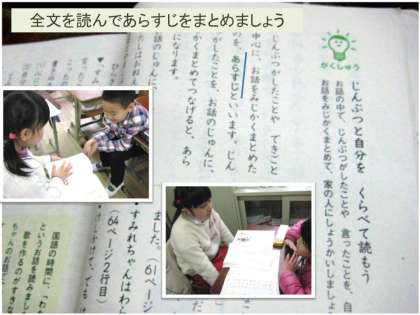 全文を読んであらすじをまとめましょう
がくしゅう
じんぶつと自分を くらべて読もう
お話の中で、じんぶつがしたことや 言ったことを、自
お話をみじかくまとめて、家の人にしょうかいしましょ
じんぶつがしたことや できごと
中心に、お話をみじかくまとめた
のを、あらすじといいます。じん
がしたことを、お話のじゅんに、
かくまとめてつなげると、あら
になります。
ました。（61ページ
すみれちゃんはわら
（64ページ2行目）
国語の時間に、「わ
というお話を読みまし
歌を作るのがすきな
ちゃんのお話